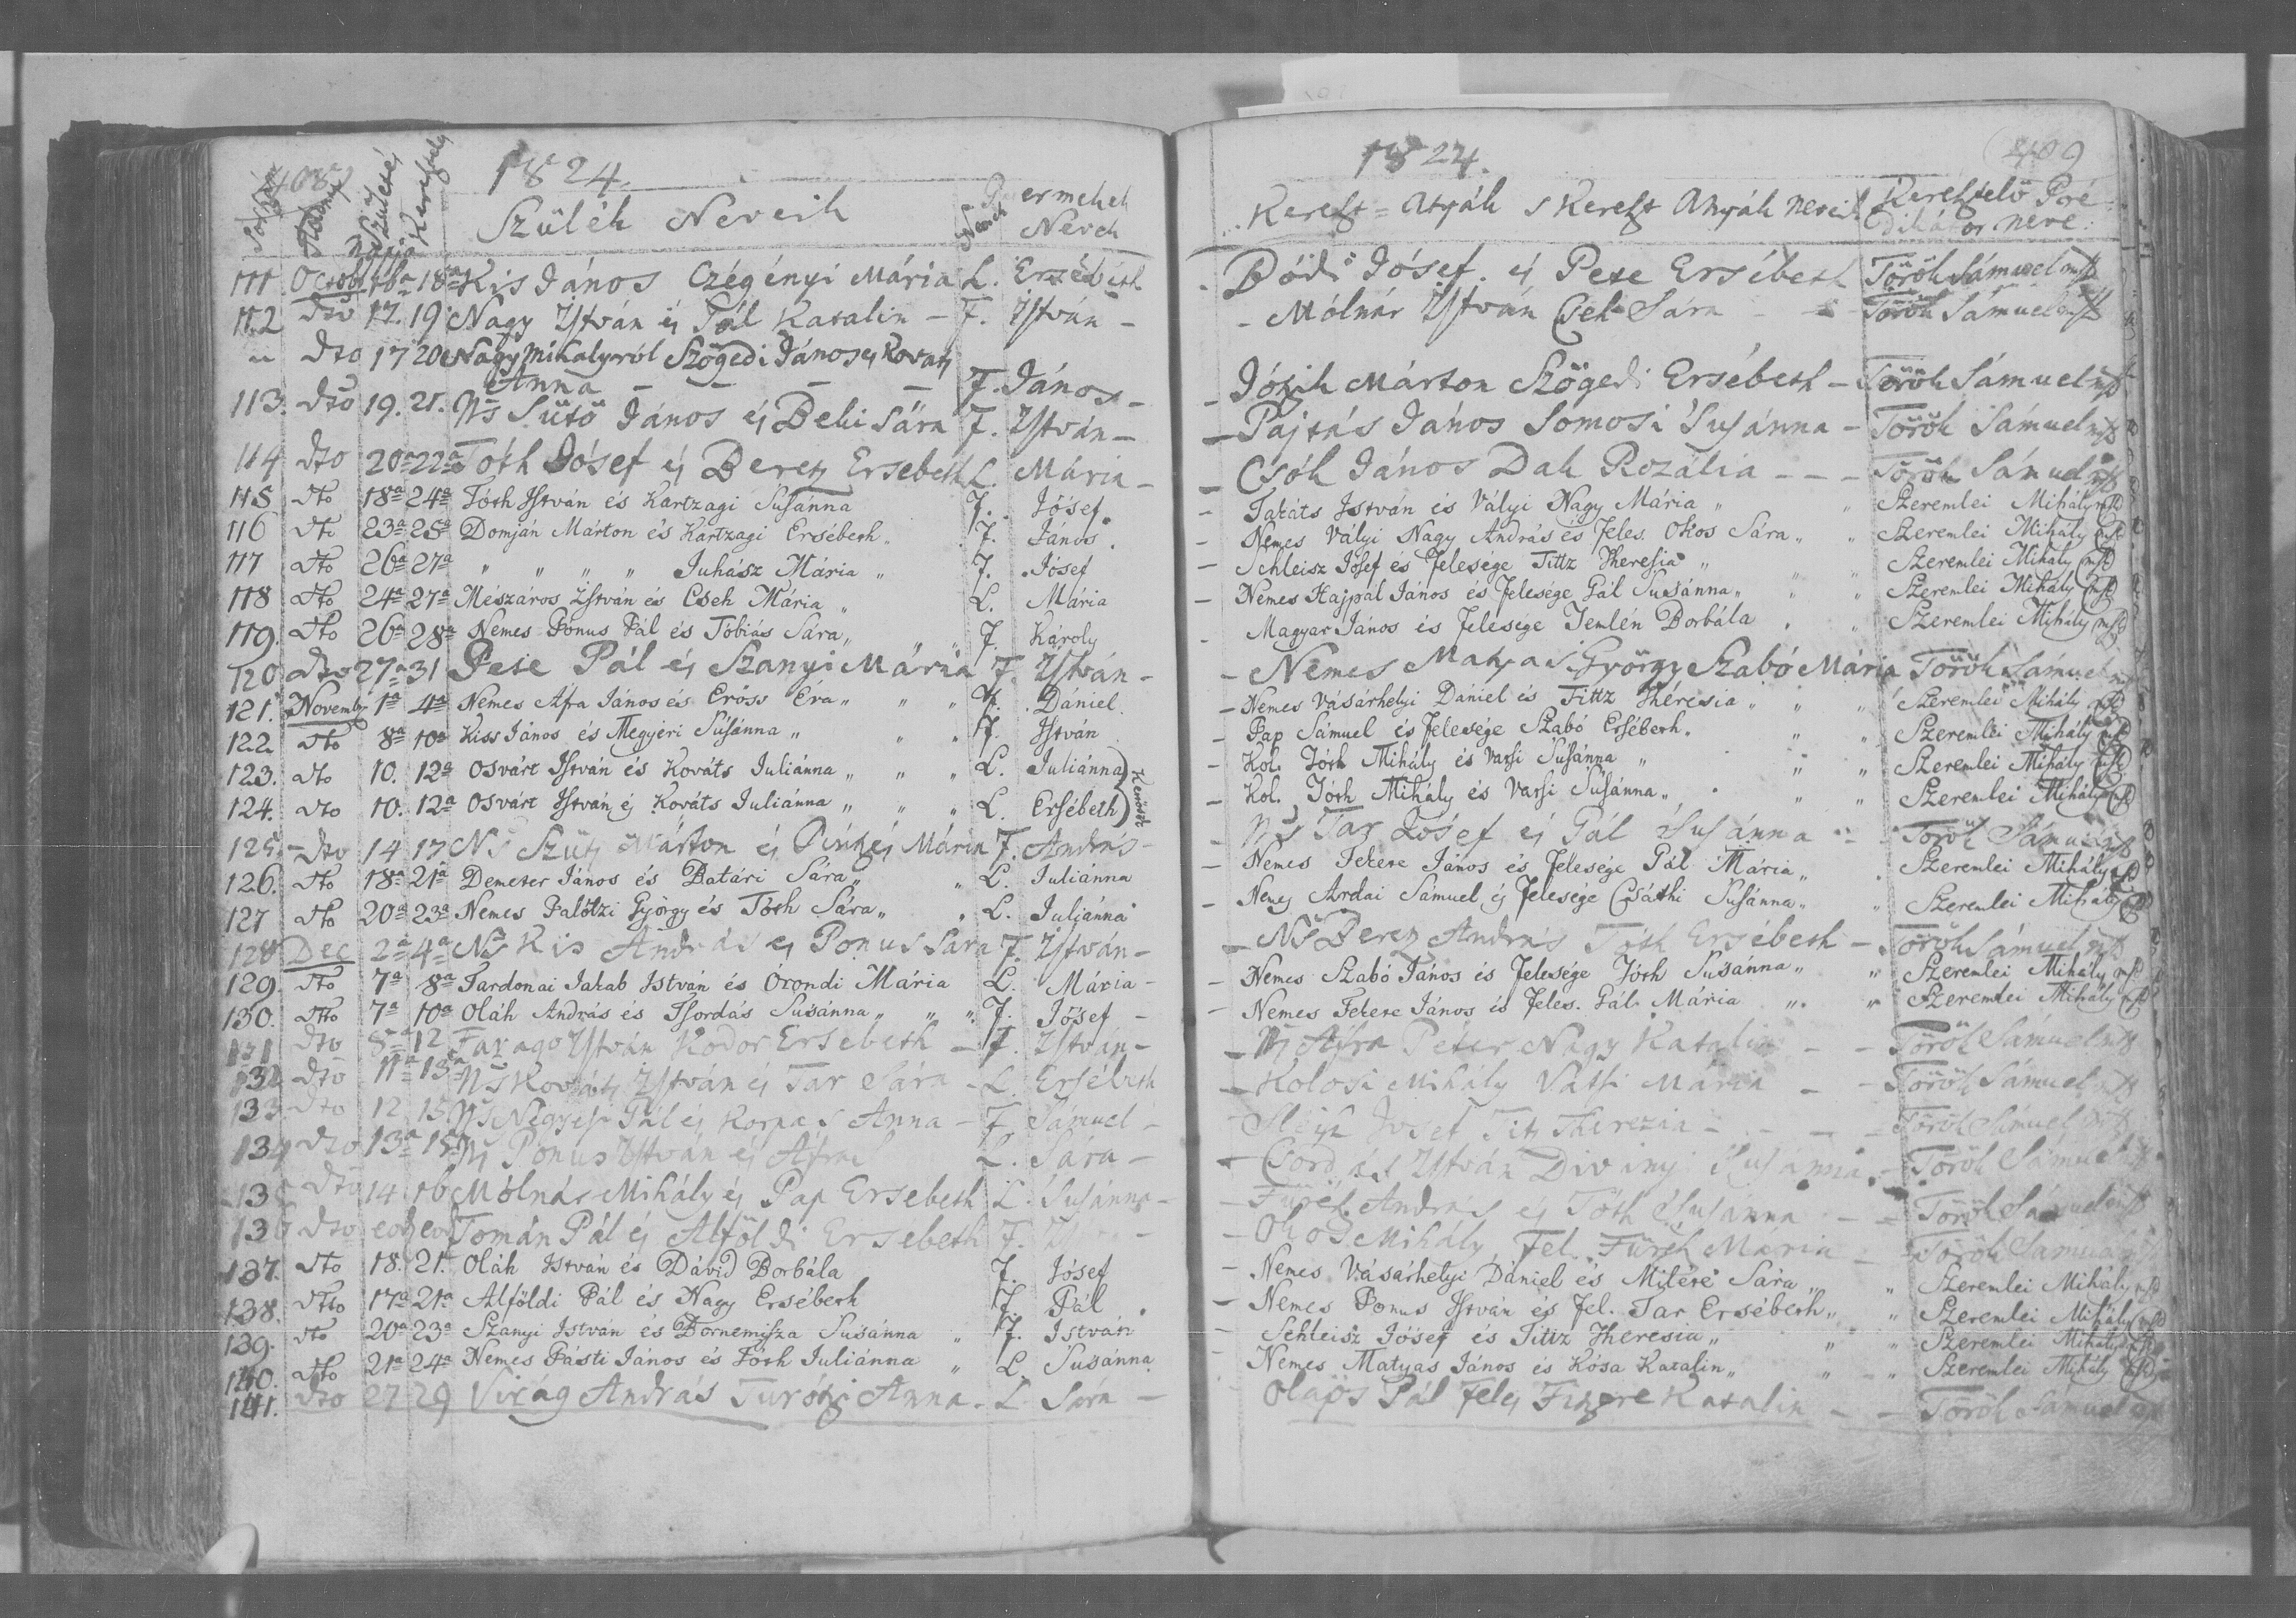 408 1824.
Szüléik Neveik Nemek Gyermekek Nevek
Születés Keresztelés Napja
111 Octobr 16a 18a Kis János Czégényi Mária L. Ersébeth
112 dto 17. 19 Nagy Istvàn és Pál Katalin - F. István -
" dto 17 20 Nagy Mihályról Szögedi János és Kovats
Anna - - - - F. János -
113. dto 19. 21. Ns Sütö János és Beki Sára F. István -
114 dto 20a 22a Tóth Jósef és Beretz Ersebeth L. Mária -
115 dto 18a 24a Tóth István és Kartzagi Susánna F. Jósef
116 dto 23a 25a Domján Márton és Kartzagi Ersébeth " F. János.
117 dto 26a 27a " " " " Juhász Mária " F. Jósef
118 dto 24a 27a Mészáros István és Cseh Mária " L. Mária
119. dto 26a 28a Nemes Ponus Pál és Tóbiás Sára " F. Károly
120 dto 27a 31 Pese Pál és Szanyi Mária F. István -
121. Novembr 1a 4a Nemes Afra János és Eröss Éva " " " F. Dániel.
122 dto 8a 10a Kiss János és Megyeri Susánna " " " F. István
123. dto 10. 12a Osvárt István és Kováts Juliánna " " " L. Juliánna
124. dto 10. 12a Osvárt István és Kováts Juliánna " " " L. Ersébeth } Kettösök
125. dto 14 17 Ns Szüts Márton és Mária F. András -
126. dto 18a 21a Demeter János és Batári Sára " " L. Juliánna
127 dto 20a 23a Nemes Palótzi György és Tóth Sára " " L. Juliánna
128 Dec 2a 4a Ns Kis András és Ponus Sara F. István -
129. dto 7a 8a Tardonai Jakab István és Orondi Mária L. Mária -
130. dto 7a 10a Oláh András és Tsordás Susánna " " " F. Jósef -
131 dto 8a 12 Farago István Kodor Ersebeth - F. István -
132 dto 11a 13a Ns Kováts István és Tar Sára - L. Ersébeth
133 dto 12 15 Ns Négyesi Pál és Korpas Anna - F. Sámuel -
134 dto 13a 15a Ns Ponus István és Afra L. Sára -
135 dto 14 16 Mólnár Mihály és Pap Ersebeth L. Susánna -
136 dto eod eod Tomán Pál és Alföldi Ersebeth F.
137. dto 18. 21. Oláh István és Dávid Borbála F. Jósef
138. dto 17a 21a Alföldi Pál és Nagy Ersébeth F. Pál.
139. dto 20a 23a Szanyi István és Bornemisza Susánna " F. István
140. dto 21a 24a Nemes Pásti János és Tóth Juliánna " L. Susánna
141. dto 27 29 Virág András Turótzi Anna - L. Sára -
1824. 409
Kereszt = Atyák s Kereszt Anyák nevei Keresztelö Pré
dikátor neve.
- Bódi Jósef. és Pese Ersébeth Török Sámuel mk
- Mólnár István Cseh Sára - - Török Sámuel mk
- Jósik Márton Szögedi Ersébeth - Török Sámuel mk
- Pajtás János Somosi Susánna - Török Sámuel mk
- Csók János Dak Rozália - - - Török Sámuel mk
- Takáts István és Vályi Nagy Mária " " Szeremlei Mihály mk
- Nemes Vályi Nagy András és Feles. Okos Sára " " Szeremlei Mihály mk
- Schleisz Jósef és Felesége Tittz Theresia " " " Szeremlei Mihály mk
- Nemes Hajpál János és Felesége Pál Susánna " " " Szeremlei Mihály mk
- Magyar János és Felesége Temlén Borbála " " Szeremlei Mihály mk
- Nemes Matyas György Szabó Mária Török Sámuel mk
- Nemes Vásárhelyi Dániel és Tittz Theresia " " " Szeremlei Mihály mk
- Pap Sámuel és Felesége Szabó Ersébeth. " " Szeremlei Mihály mk
- Kol. Tóth Mihály és Vassi Susánna " " " Szeremlei Mihály mk
- Kol. Tóth Mihály és Vassi Susánna " " " Szeremlei Mihály mk
- Ns Tar Jósef és Pál Susánna - Török Sámuel mk
- Nemes Fekete János és Felesége Pál Mária " . Szeremlei Mihály mk
- Nemes Ardai Sámuel és Felesége Csáthi Susánna " " Szeremlei Mihály mk
- Ns Beretz András Tóth Ersébeth - Török Sámuel mk
- Nemes Szabó János és Felesége Tóth Susánna " " Szeremlei Mihály mk
- Nemes Fekete János és Feles. Pál Mária " " Szeremlei Mihály mk
- Ns Afra Péter Nagy Katalin - - Török Sámuel mk
- Kolosi Mihály Vassi Mária - - Török Sámuel mk
Josef Titz Therezia - - - Török Sámuel mk
- Csordás István Divinyi Susánna. - Török Sámuel mk
- Füred András és Tóth Susánna - - Török Sámuel mk
- Okos Mihály Fel. Maria - Török Sámuel mk
- Nemes Vásárhelyi Dániel és Mitére Sára " " Szeremlei Mihály mk
- Nemes Ponus István és Fel. Tar Ersébeth " " Szeremlei Mihály mk
Schleisz Jósef és Tittz Theresia " " " Szeremlei Mihály mk
Nemes Matyas János és Kósa Katalin " " " Szeremlei Mihály mk
Olajos Pál Feles Katalin - - Török Sámuel mk